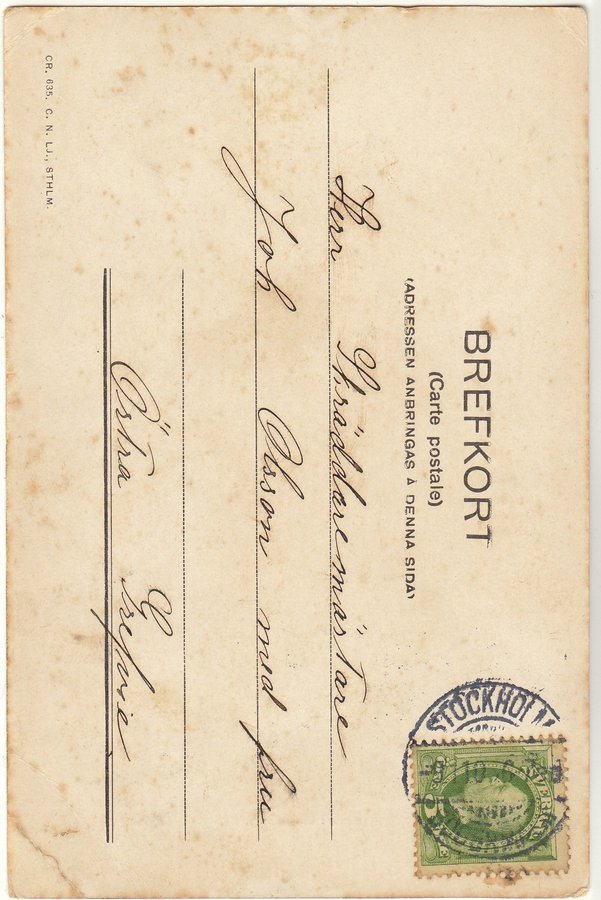 BREFKORT
(Carte postale)
(ADRESSEN ANBRINGAS Å DENNA SIDA)
STOCKHOLM
SVERIGE
Herr Skräddaremästare
Joh Olsson med fru
Östra Grefvie
CR. 635. C. N. LJ., STHLM.